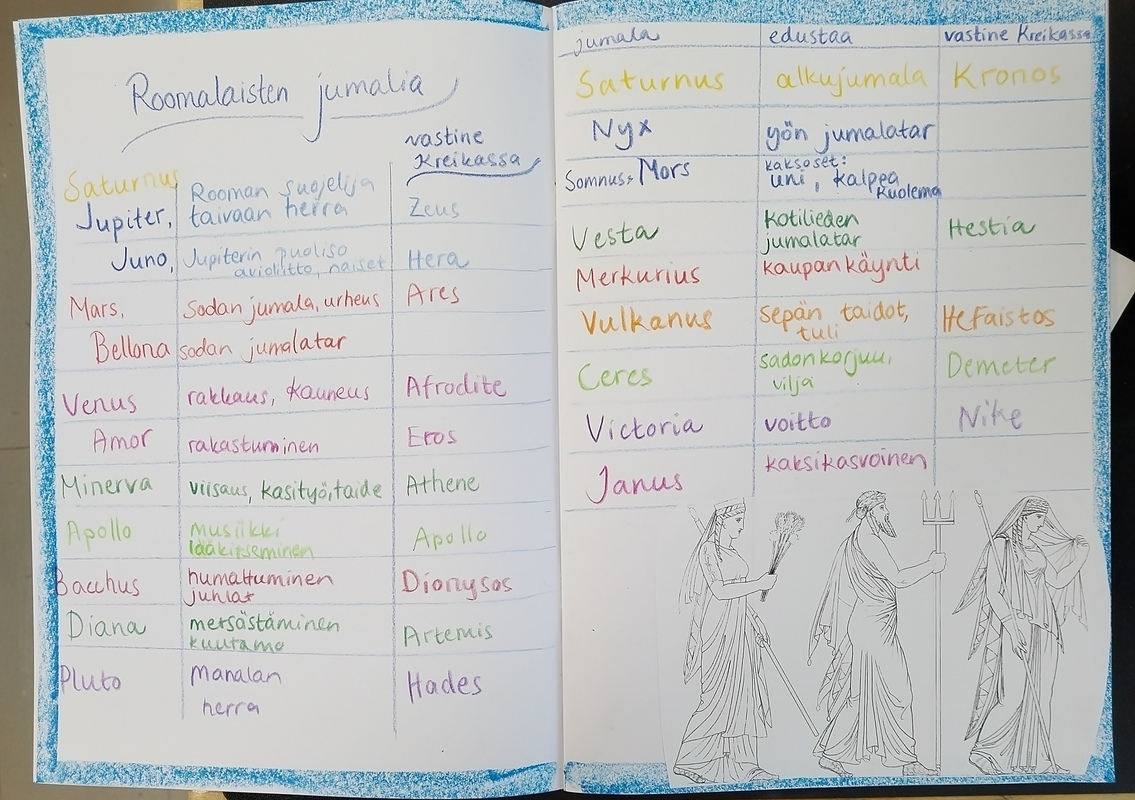 Roomalaisten jumalia
vastine
Kreikassa
Saturnus
Jupiter, Rooman suojelija
taivaan herra Zeus
Juno, Jupiterin puoliso
avioliitto, naiset Hera
Mars, Sodan jumala, urheus Ares
Bellona sodan jumalatar
Venus rakkaus, kauneus Afrodite
Amor rakastuminen Eros
Minerva viisaus, kasityö, taide Athene
Apollo musiikki
lääkitseminen Apollo
Bacchus humaltuminen
juhlat Dionysos
Diana metsästäminen
kuutamo Artemis
Pluto manalan
herra Hades
jumala edustaa vastine Kreikassa
Saturnus alkujumala Kronos
Nyx yön jumalatar
Somnus, Mors kaksoset:
uni, kalpea
kuolema
Vesta kotilieden
jumalatar Hestia
Merkurius kaupankäynti
Vulkanus sepän taidot,
tuli Hefaistos
Ceres sadonkorjuu,
vilja Demeter
Victoria voitto Nike
Janus kaksikasvoinen